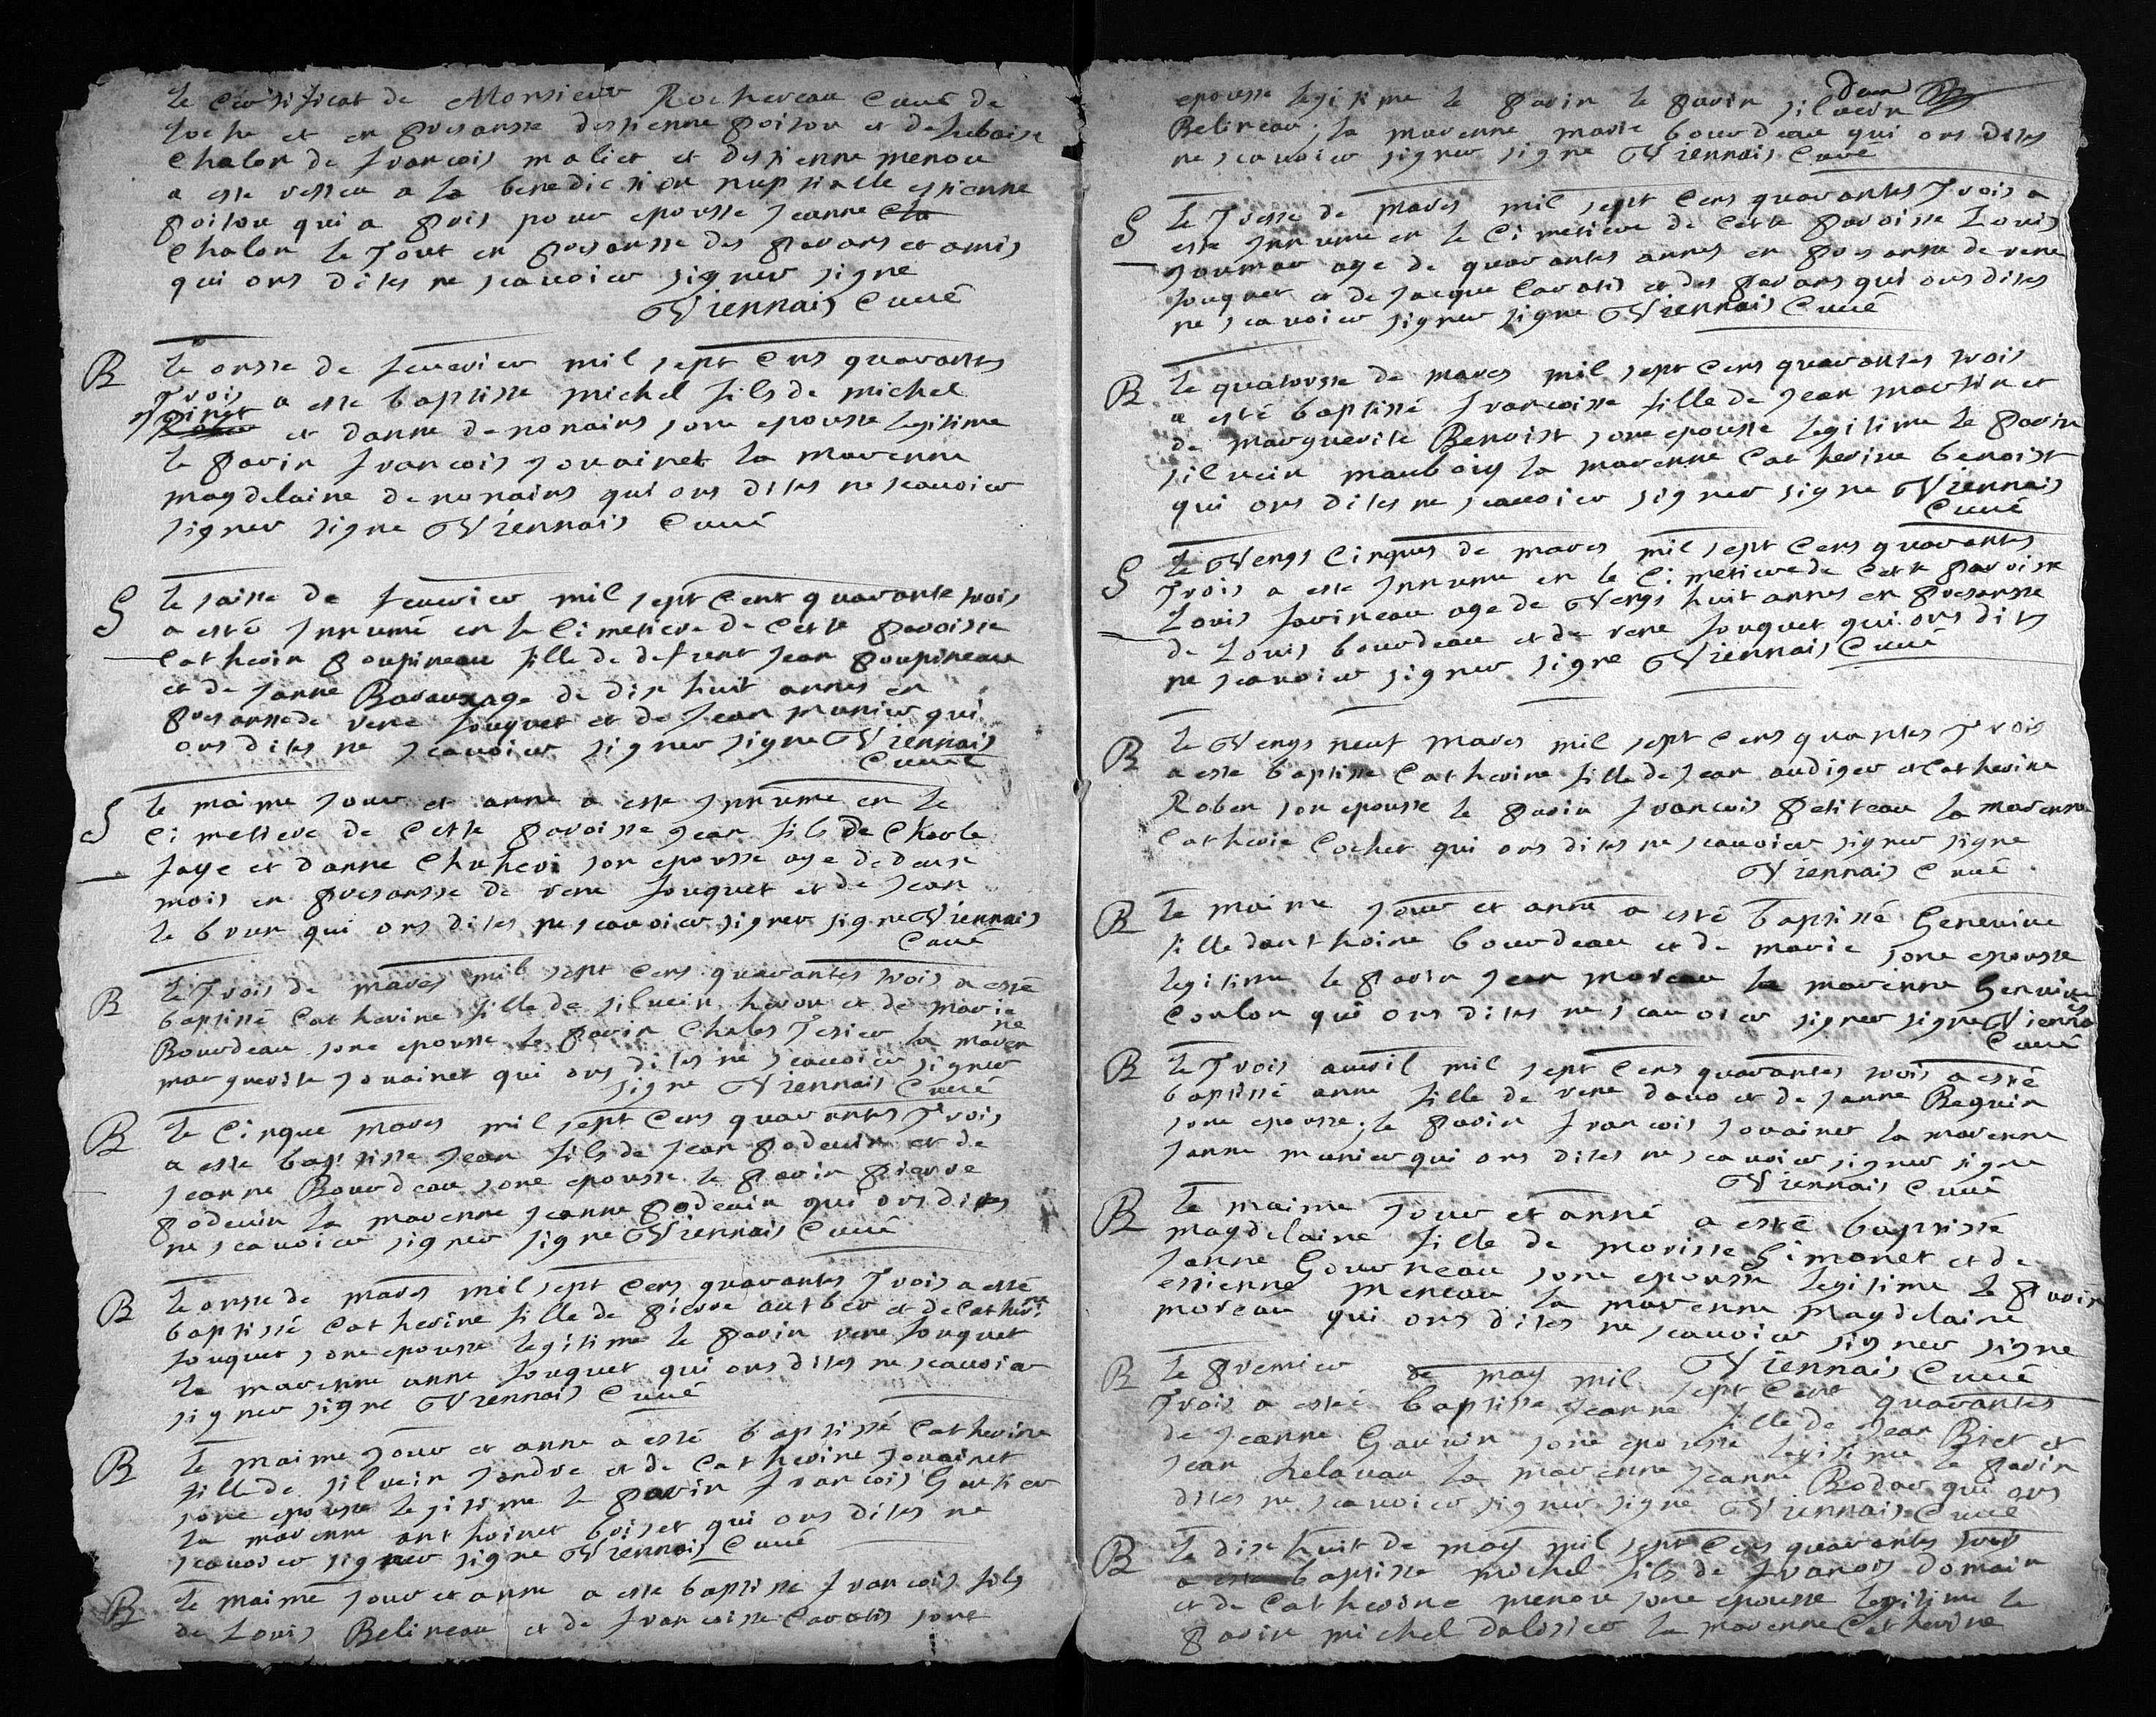 le certificat de Monsieur Rochereau Curé de
loche et en presansse destienne poitou et de
chalon de francois malier et destienne menou
a este resseu a la benediction nuptialle estienne
poitou qui a pris pour epousse jeanne
chalon le tout en presansse des parans et amis
qui ons dites ne scauoier signer signe
Viennais Curé
B le onsse de feuerier mil sept cens quarantes
trois a este baptisse michel fils de michel
jouinet et danne denonains sone epousse legitime
le parin francois jouainet la marenne
magdelaine denonains qui ons dites ne scauoier
signer signe Viennais Curé
S le saisse de feuerier mil sept cent quarante trois
a esté innumé en le cimetiere de cette paroisse
catherin poupineau fille de defunt jean poupineau
et de janne age de dix huit annes en
presansse de rene fouquet et de jean munier qui
ons dites ne scauoier signer signe Viennais
Curé
S le maime jour et anne a este innume en le
cimetiere de cette paroisse jean fils de charle
faye et danne son epousse age de deuse
mois en presansse de rene fouquet et de jean
le brun qui ons dites ne scauoier signer signe Viennais
Curé
B le trois de mares mil sept cens quarantes trois a esté
baptissé catherine fille de siluein herou et de marie
Bourdeau sone epousse le parin chales tesier la maren
ne
marguerite jouainet qui ons dites ne scauoier signer
signe Viennais Curé
B le cinque mares mil sept cens quarantes trois
a este baptisse jean fils de jean podeuin et de
jeanne Bourdeau sone epousse le parin pierre
podeuin la marenne jeanne podeuin qui ons dites
ne scauoier signer signe Viennais Curé
B le onsse de mares mil sept cens quarantes trois a esté
baptissé catherine fille de pierre autber et de catheri
ne
fouquet sone epousse legitime le parin rene fouquet
la marenne anne fouquet qui ons dites ne scauoier
signer signe Viennais Curé
B le maime jour et anne a esté baptissé catherine
fille de siluein jondre et de catherine jouainet
sone epousse legitime le parin francois Gautier
la marenne anthoinet boiset qui ons dites ne
scauoier signer signe Viennais Curé
B le maime jour et anne a este baptisse francois fils
de Louis Belineau et de francoisse cavatis sone
epousse legitime le parin le parin siluein
Belineau la marenne marie bourdeau qui ons dites
ne scauoier signer signe Viennais Curé
S le tresse de mares mil sept cens quarantes trois a
este innume en le cimetiere de cette paroisse Louis
joumar age de quarantes annes en presansse de rene
fouquet et de jacque cavatis et des parans qui ons dites
ne scauoier signer signe Viennais Curé
B le quatorsse de mares mil sept cens quarantes trois
a esté baptissé francoisse fille de jean martin et
de marguerite Benoist sone epousse legitime le parin
siluein maubois la marenne catherine benoist
qui ons dites ne scauoier signer signe Viennais
Curé
S le Vengs cinques de mares mil sept cens quarantes
trois a este innume en le cimetiere de cette paroisse
Louis farineau age de Vengs huit annes en presansse
de Louis bourdeau et de rene fouquet qui ons dites
ne scauoier signer signe Viennais Curé
B le Vengs neuf mares mil sept cens quarantes trois
a este baptisse catherine fille de jean audiger et catherine
Rober son epousse le parin francois petiteau la marenne
catherie cochet qui ons dites ne scauoier signer signe
Viennais Curé
B le maime jour et anne a esté baptissé Geneuiue
fille danthoine bourdeau et de marie sone epousse
legitime le parin jean moreau la marenne Genuiue
coulon qui ons dites ne scauoier signer signe Viennais
Curé
B le trois auril mil sept cens quarantes trois a esté
baptissé anne fille de rene dauo et de janne Beguin
sone epousse le parin francois jouainet la marenne
janne munier qui ons dites ne scauoier signer signe
Viennais Curé
B le maime jour et anné a esté baptissé
magdelaine fille de morisse Simonet et de
janne Gourneau sone epousse legitime le parin
estienne meneau la marenne magdelaine
moreau qui ons dites ne scauoier signer signe
Viennais Curé
B le premier de may mil sept cens quarantes
trois a esté baptisse jeanne fille de jean Biet et
de jeanne Gauuin sone epousse legitime le parin
jean la marenne jeanne Bodar qui ons
dites ne scauoier signer signe Viennais Curé
B le dix huit de may mil sept cens quarantes trois
a este baptisse michel fils de francois domain
et de catherine menou sone epousse legitime le
parin michel dalosier la marenne catherine